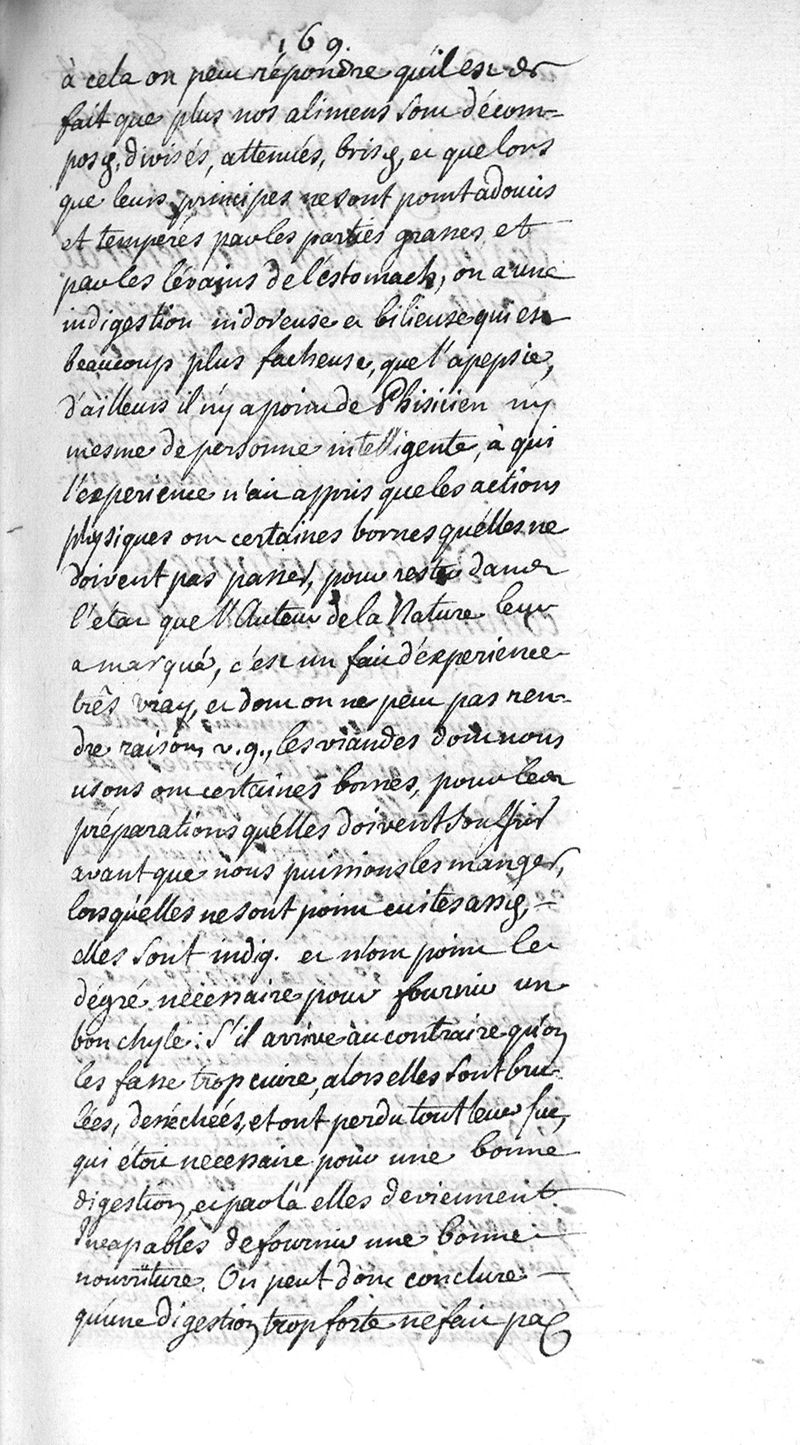 169.
à cela on peut répondre qu'il est de
fait que plus nos alimens sont décom-
posés, divisés, attenués, brisés, et que lors
que leurs principes ne sont point adoucis
et tempérés par les parties grasses et
par les lévains de l'éstomach, on a une
indigestion nidoreuse et bilieuse qui est
beaucoup plus facheuse, que l'apepsie,
d'ailleurs il n'y a point de Phisicien n'y
mesme de personne intelligente, à qui
l'éxperience n'ait appris que les actions
physiques ont certaines bornes qu'élles ne
doivent pas passer, pour rester dans
l'état que l'Auteur de la Nature leur
a marqué, c'est un fait d'éxperience
très vray, et dont on ne peut pas ren-
dre raison, v.g., les viandes dont nous
usons ont certaines bornes, pour les
préparations qu'élles doivent souffrir
avant que nous puissions les manger,
lorsqu'elles ne sont point cuites assés,
elles sont indig. et n'ont point le
dégré nécéssaire pour fournir un
bon chyle: S'il arrive au contraire qu'on
les fasse trop cuire, alors elles sont bru-
lées, deséchées, et ont perdu tout leur suc,
qui étoit necessaire pour une bonne
digestion, et par là elles deviennent
Incapables de fournir une bonne
nourriture. On peut donc conclure
qu'une digestion trop forte ne fait pas